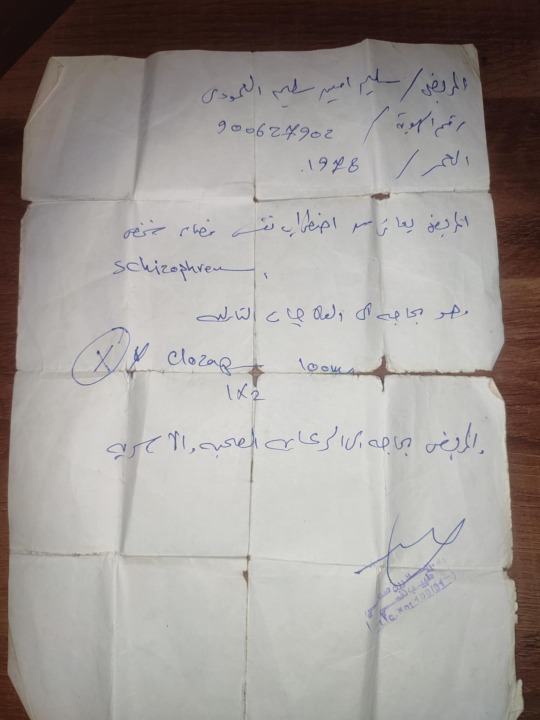 المريض / سليم امين سليم
رقم الهوية / 900627902
العمر / 1978.
المريض يعاني من اضطراب نفسي
Schizophren
وهو بحاجة الى العلاجات التالية
Clozap 100m
1x2
والمريض بحاجة الى الرعاية الصحية والاسرية